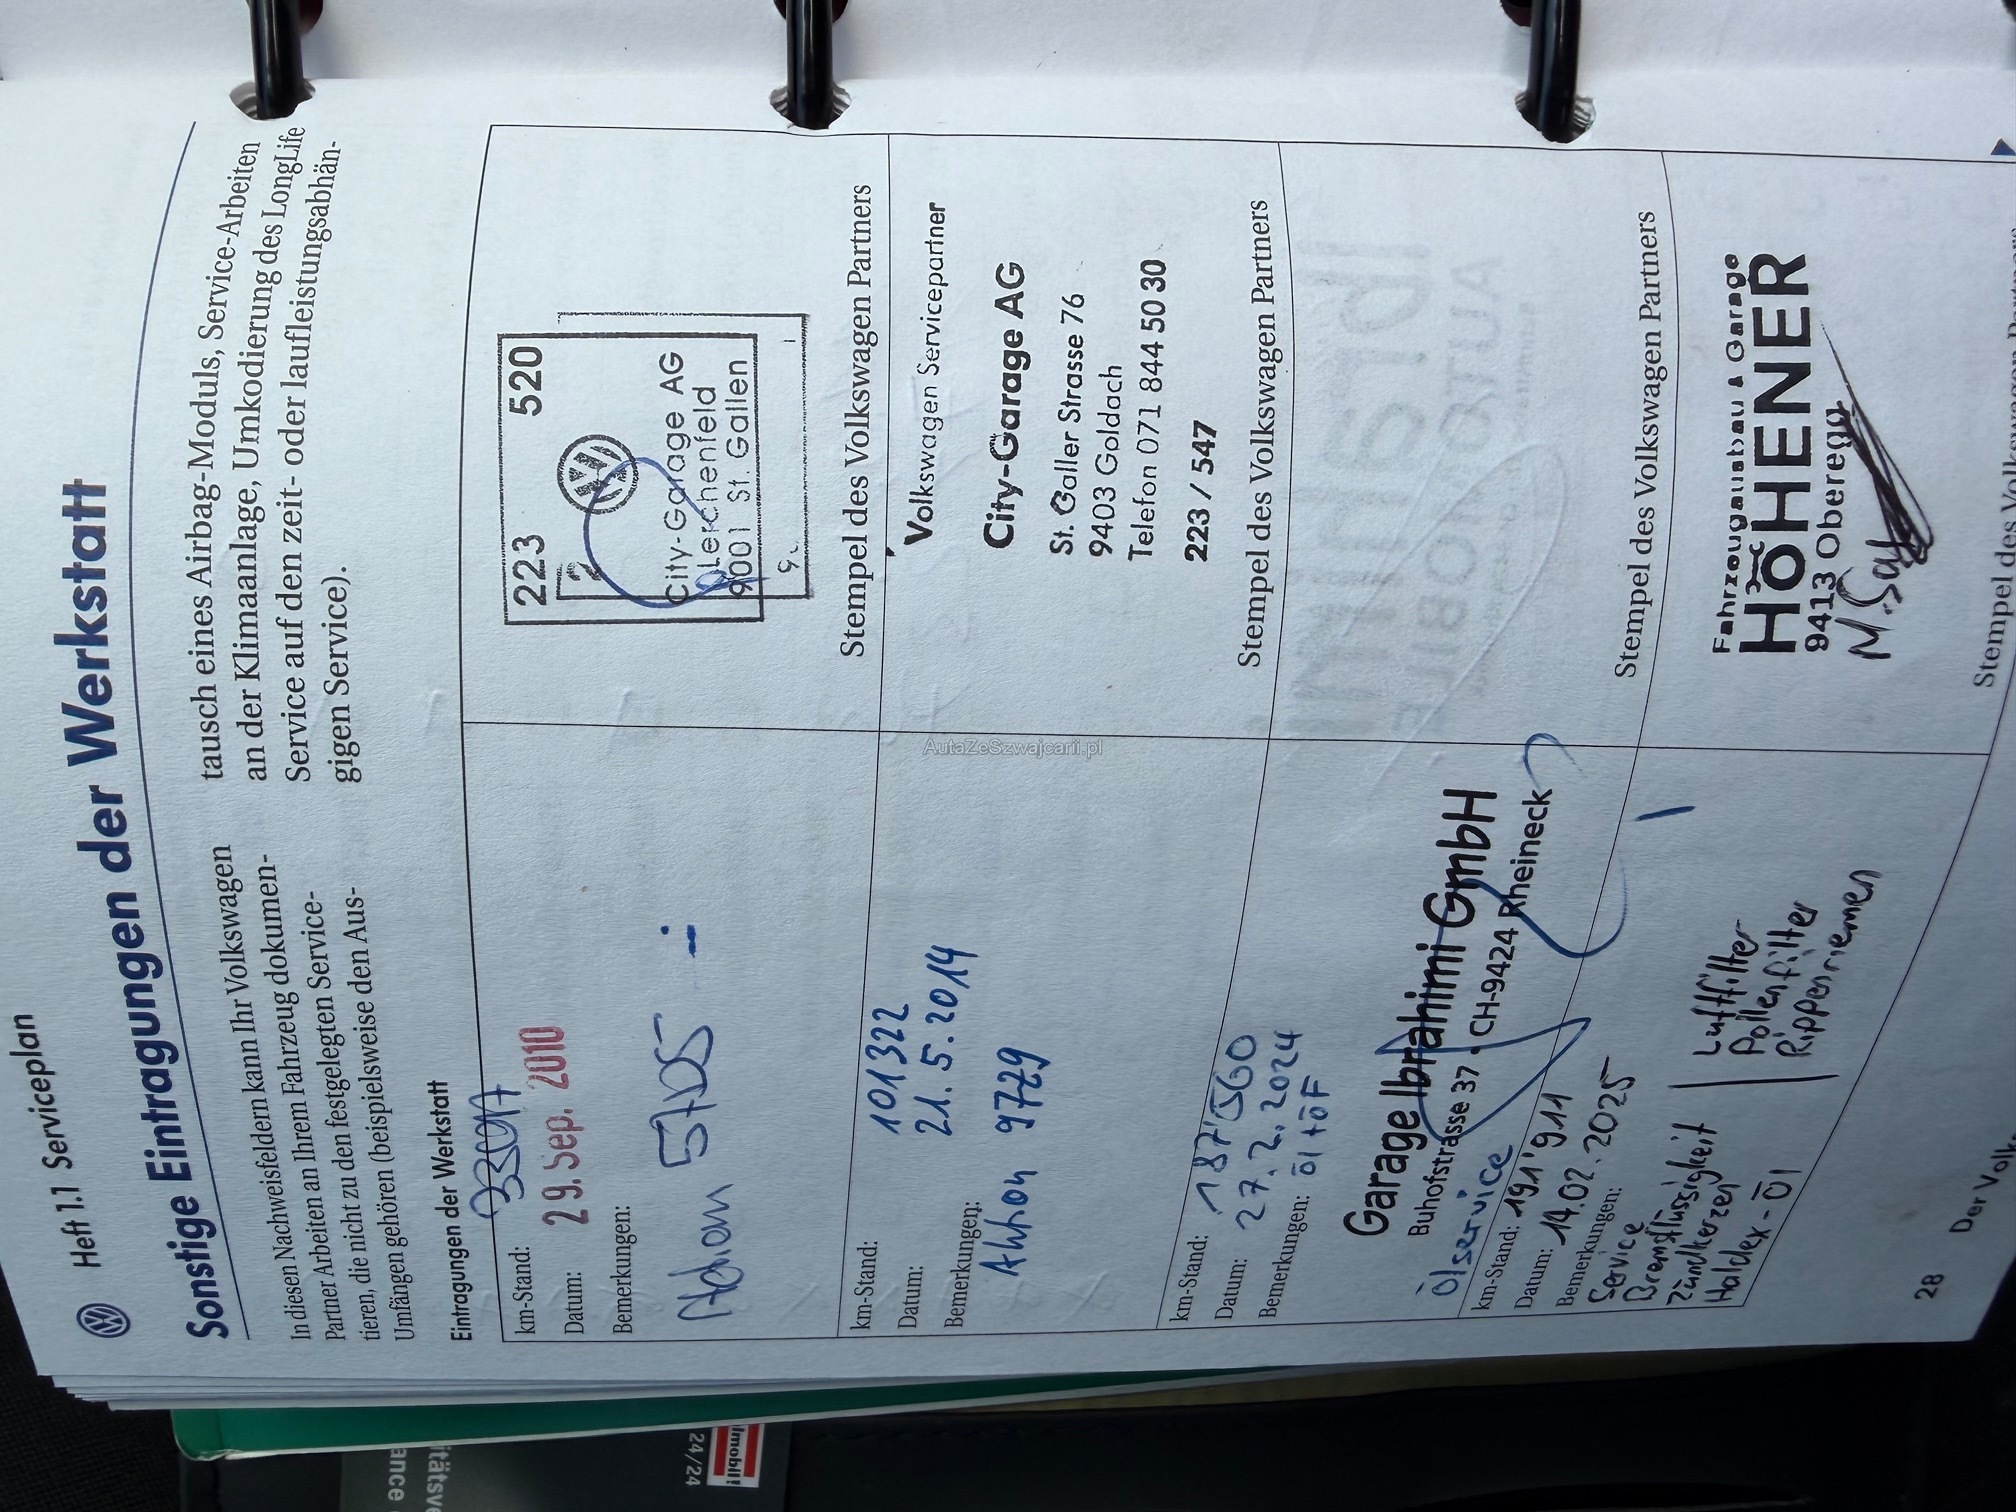 Heft 1.1 Serviceplan
Sonstige Eintragungen der Werkstatt
In diesen Nachweisfeldern kann Ihr Volkswagen
Partner Arbeiten an Ihrem Fahrzeug dokumen-
tieren, die nicht zu den festgelegten Service-
Umfängen gehören (beispielsweise den Aus-
tausch eines Airbag-Moduls, Service-Arbeiten
an der Klimaanlage, Umkodierung des LongLife
Service auf den zeit- oder laufleistungsabhän-
gigen Service).
Eintragungen der Werkstatt
km-Stand:
Datum: 29. Sep. 2010
Bemerkungen:
223 520
City-Garage AG
Lerchenfeld
9001 St. Gallen
Stempel des Volkswagen Partners
km-Stand: 101322
Datum: 21.5.2014
Bemerkungen:
9729
Volkswagen Servicepartner
City-Garage AG
St. Galler Strasse 76
9403 Goldach
Telefon 071 844 50 30
223 / 547
Stempel des Volkswagen Partners
km-Stand: 187'560
Datum: 27.2.2024
Bemerkungen: Öl + ÖF
Garage Ibrahimi GmbH
Buhofstrasse 37 · CH-9424 Rheineck
Ölservice
Stempel des Volkswagen Partners
km-Stand: 191'911
Datum: 14.02.2025
Bemerkungen:
Service
Bremsflüssigkeit
Zündkerzen
Haldex - Öl
Luftfilter
Pollenfilter
Rippenriemen
Fahrzeugausbau & Garage
HÖHENER
9413 Oberegg
Stempel des Volkswagen Partners
28
Der Volk
AutaZeSzwajcarii.pl
24/24